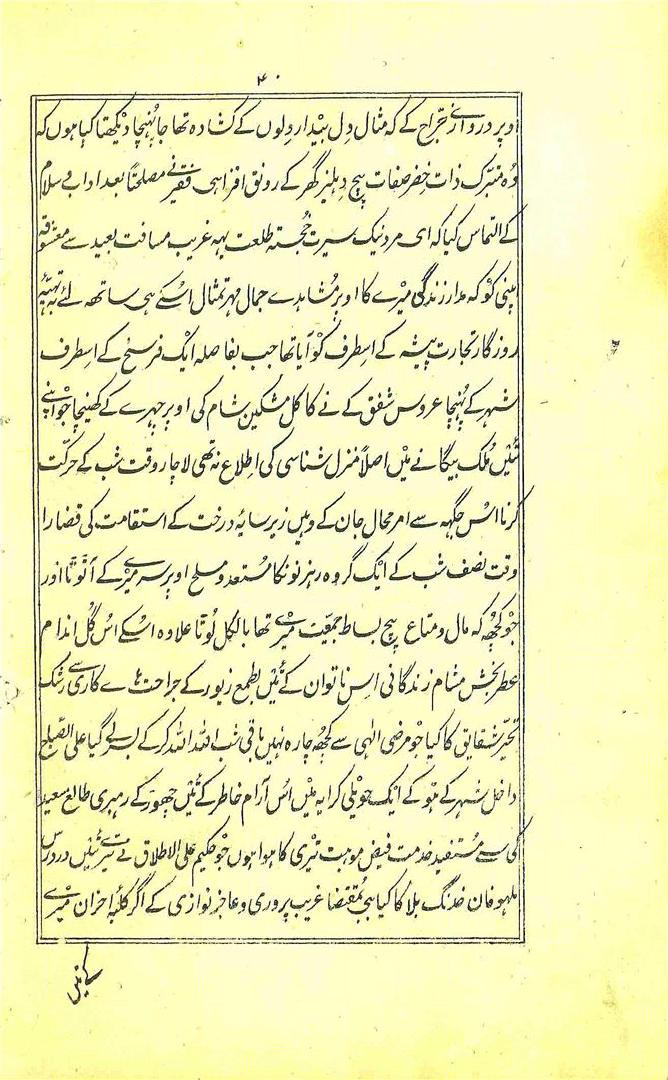 ۴۰
اوپر دروازے جراح کے کہ مثال دل بیدار دلوں کے کشادہ تھا جا پہنچا دیکھتا کیا ہوں کہ
وہ متبرک ذات خضر صفات بیچ دہلیز گھر کے رونق افزا ہی فقیر نے مصلحتاً بعد ادا بے سلام
کے التماس کیا کہ ای مرد نیک سیرت خجستہ طلعت یہہ غریب مسافت بعید سے معشوقہ
اپنی کو کہ مدار زندگی میرے کا اوپر مشاہدے جمال مہر تمثال اسکے ہی ساتھ لئے بہ تہیّہ
روزگار تجارت پیشہ کے اسطرف کو آیا تھا جب بفاصلہ ایک فرسنخ کے اسطرف
شہر کے پہنچا عروس شفق کے نے کاکل مشکین شام کی اوپر چہرے کے کھینچا جو اپنے
تئیں ملک بیگانے میں اصلاً منزل شناسی کی اطلاع نہ تھی لاچار وقت شب کے حرکت
کرنا اس جگہہ سے امر محال جان کے وہیں زیر سایۂ درخت کے استقامت کی قضارا
وقت نصف شب کے ایک گروہ رہزنونکا مستعد و مسلح اوپر سر میرے کے آ ٹوٹا اور
جو کچھہ کہ مال و متاع بیچ بساط جمعیت میرے تھا بالکل لوٹا علاوہ اسکے اس گل اندام
عطر بخش مشام زندگانی اس ناتوان کے تئیں بطمع زیور کے جراحت ہاے کاری سے رشک
تختہ شقایق کا کیا جو مرضی الٰہی سے کچھہ چارہ نہیں باقی شب اللہ اللہ کر کے بسر لے گیا علی الصباح
داخل شہر کے ہو کے ایک حویلی کرایہ میں اس آرام خاطر کے تئیں چھوڑ کے رہبری طالع سعید
کی سے مستفید خدمت فیض موہبت تیری کا ہوا ہوں جو حکیم علی الاطلاق نے تیرے تئیں دردرس
ملہوفان خدنگ بلا کا کیا ہی بمقتضا غریب پروری و عاجز نوازی کے اگر کلبۂ احزان میرے
کے تئیں